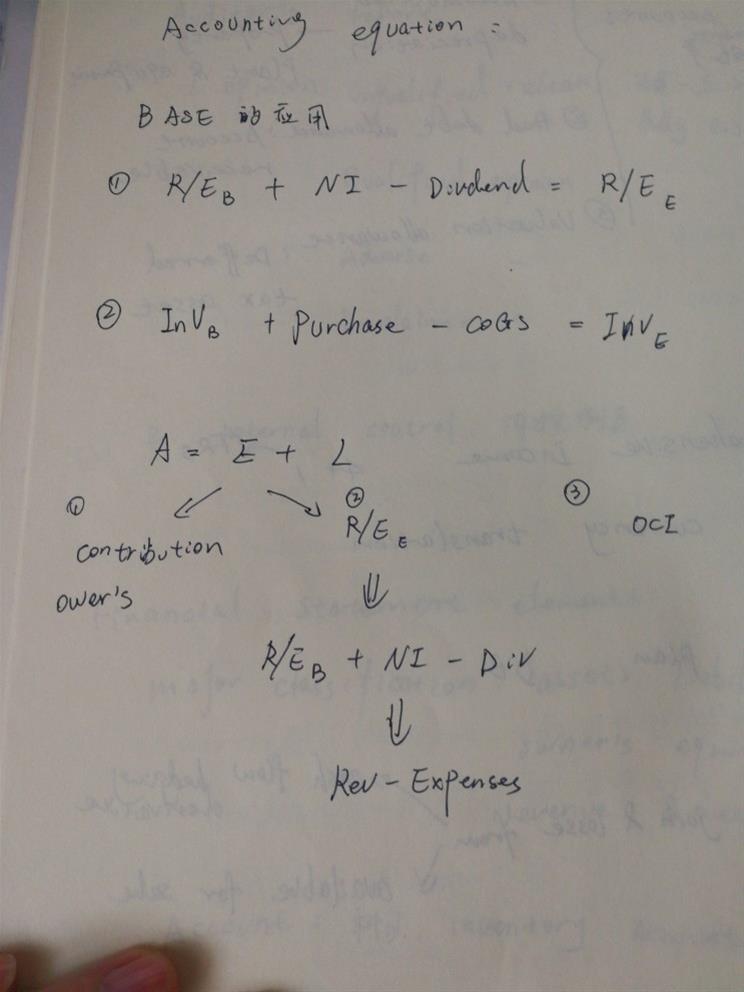 Accounting equation :
BASE 的应用
① R/E_B + NI - Dividend = R/E_E
② InV_B + Purchase - COGS = INV_E
A = E + L
① ② ③
contribution R/E_E OCI
ower's
⇓
R/E_B + NI - Div
⇓
Rev - Expenses